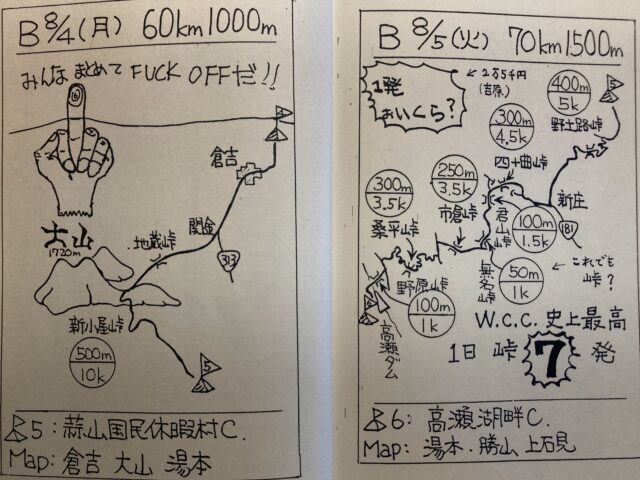 B 8/4(月) 60km1000m
みんな まとめて FUCK OFFだ!!
4
倉吉
大山
1720m
地蔵峠
関金
313
新小屋峠
500m
10k
5
5:蒜山国民休暇村C.
Map: 倉吉 大山 湯本
B 8/5(火) 70km1500m
1発
おいくら?
←2万5千円
(吉原)
400m
5k
5
野土路峠
300m
4.5k
四十曲峠
250m
3.5k
市倉峠
300m
3.5k
桑平峠
新庄
181
君山峠
100m
1.5k
野原峠
100m
1k
無名峠
50m
1k
←これでも
峠?
6
高瀬ダム
W.C.C. 史上最高
1日 峠 7 発
6: 高瀬湖畔C.
Map: 湯本・勝山 上石見